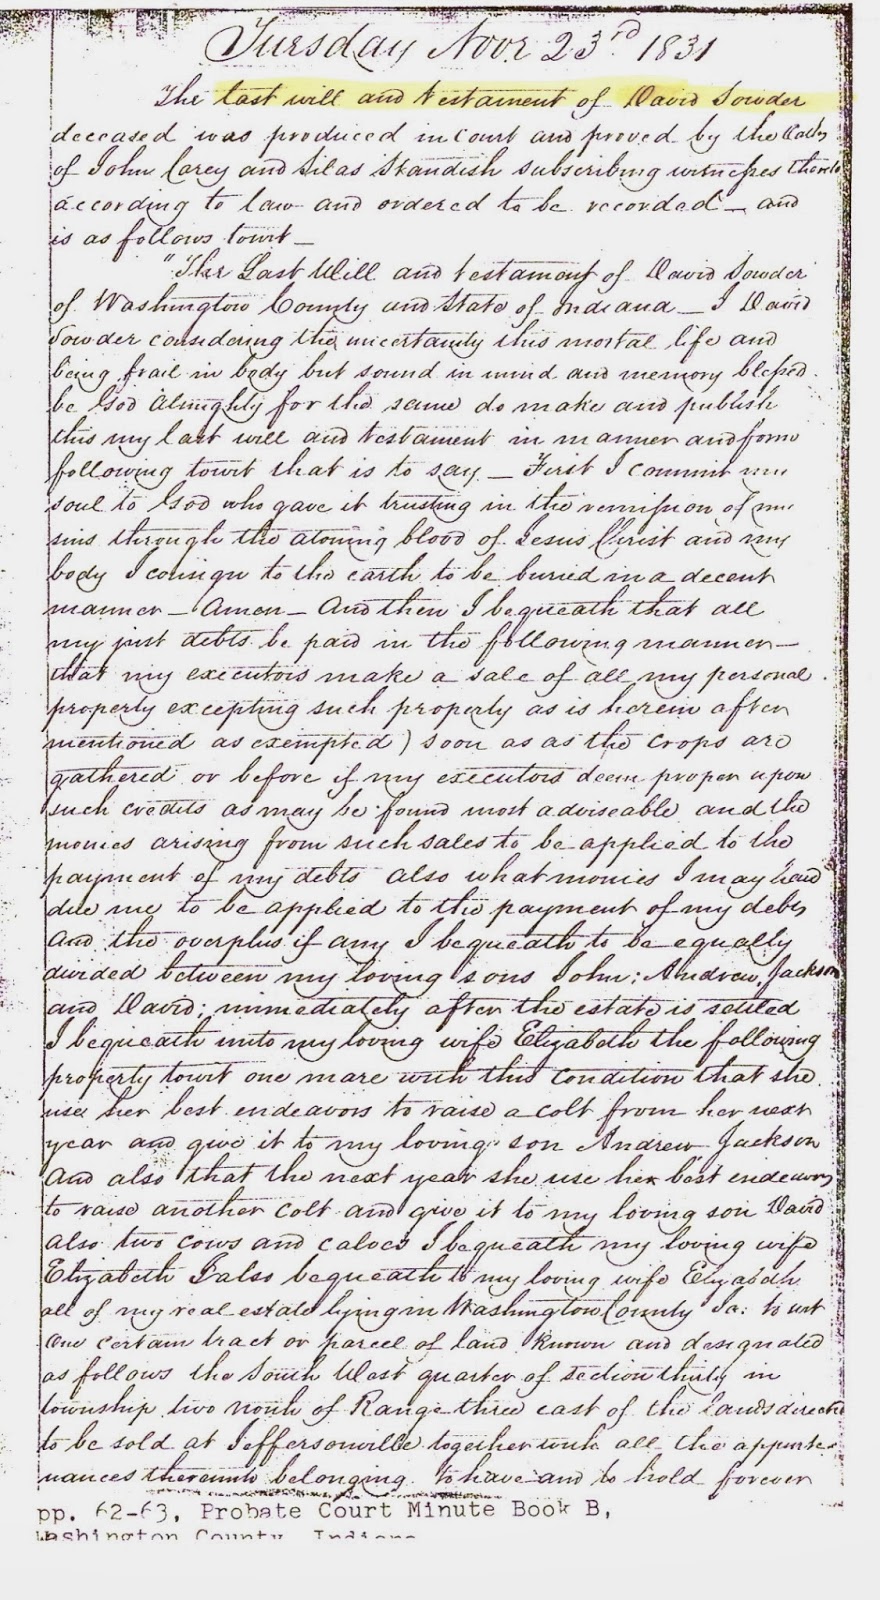 Tuesday Novr 23rd 1831
The last will and testament of David Sowder
deceased was produced in Court and proved by the Oaths
of John Carey and Silas Standish subscribing witnesses thereto
according to law and ordered to be recorded — and
is as follows towit —
"The Last Will and testament of David Sowder
of Washington County and State of Indiana — I David
Sowder considering the uncertainty this mortal life and
being frail in body but sound in mind and memory blessed
be God Almighty for the same do make and publish
this my last will and testament in manner and form
following towit that is to say — First I commit my
soul to God who gave it trusting in the remission of my
sins through the atoning blood of Jesus Christ and my
body I consign to the earth to be buried in a decent
manner — Amen — And then I bequeath that all
my just debts be paid in the following manner —
that my executors make a sale of all my personal
property excepting such property as is herein after
mentioned as exempted) soon as as the crops are
gathered or before if my executors deem proper upon
such credits as may be found most adviseable and the
monies arising from such sales to be applied to the
payment of my debts also what monies I may have
due me to be applied to the payment of my debts
and the overplus if any I bequeath to be equally
divided between my loving sons John; Andrew Jackson
and David; immediately after the estate is settled
I bequeath unto my loving wife Elizabeth the following
property towit one mare with this condition that she
use her best endeavors to raise a colt from her next
year and give it to my loving son Andrew Jackson
And also that the next year she use her best endeavors
to raise another colt and give it to my loving son David
also two cows and calves I bequeath my loving wife
Elizabeth I also bequeath to my loving wife Elizabeth
all of my real estate lying in Washington County Ia: to wit
One certain tract or parcel of land known and designated
as follows the South West quarter of section thirty in
township two north of Range three east of the lands directed
to be sold at Jeffersonville together with all the appurte-
nances thereunto belonging. To have and to hold forever
pp. 62-63, Probate Court Minute Book B,
Washington County, Indiana